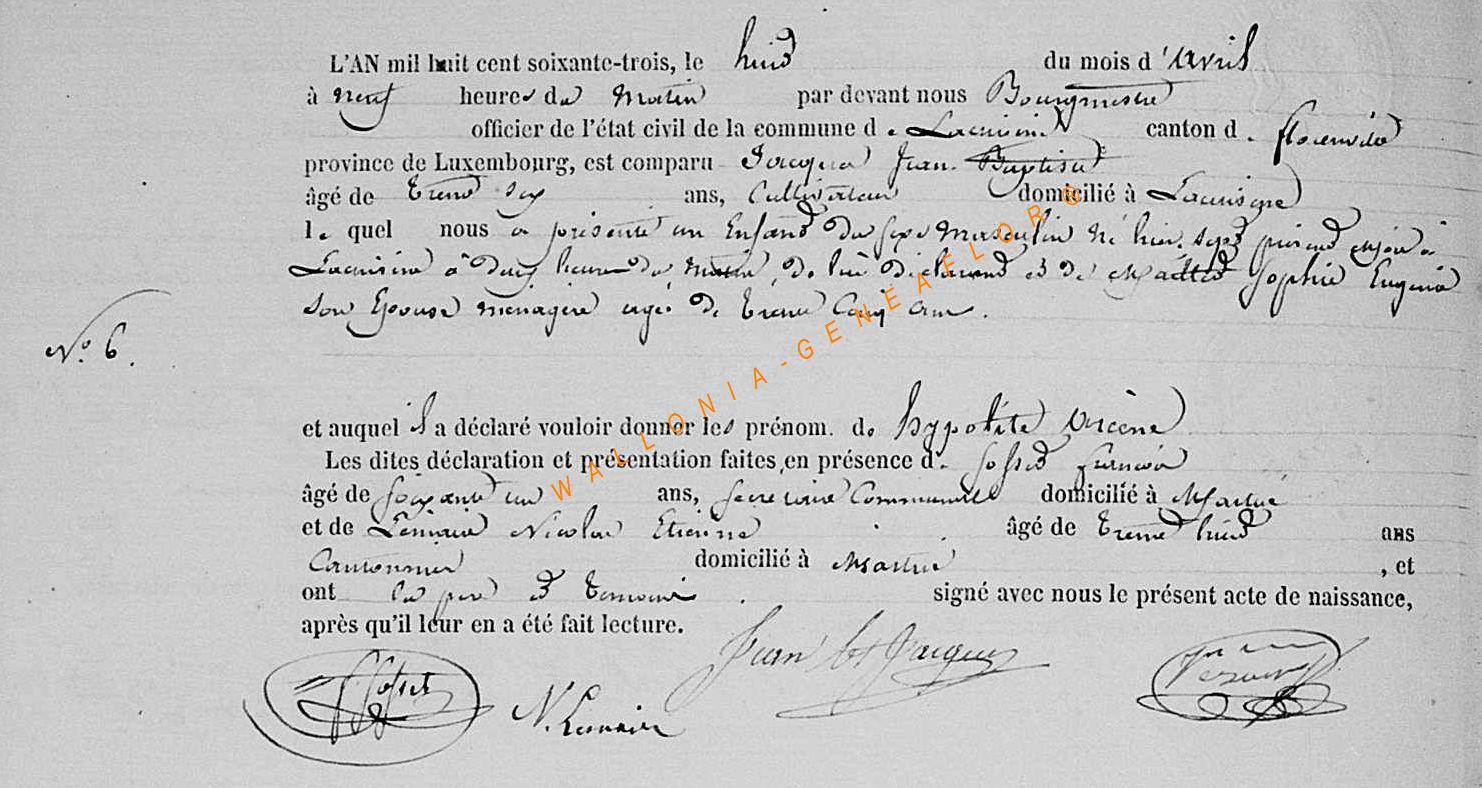 L'AN mil huit cent soixante-trois, le huit du mois d'Avril
à neuf heures du Matin par devant nous Bourgmestre
officier de l'état civil de la commune de Lacuisine canton de florenville
province de Luxembourg, est comparu Jacques Jean Baptiste
âgé de trente six ans, Cultivateur domicilié à Lacuisine
le quel nous a présenté un Enfant du sexe Masculin né hier sept
Lacuisine à heures du de lui déclarant et de Sophie Eugénie
son Epouse ménagère agée de trente Cinq ans.
N.° 6.
et auquel il a déclaré vouloir donner les prénom. de hypolite
Les dites déclaration et présentation faites en présence de Gosset françois
âgé de soixante un ans, secretaire Communal domicilié à Martué
et de Lemaire Nicolas Etienne âgé de trente huit ans
Cantonnier domicilié à Martué, et
ont le pere et temoins signé avec nous le présent acte de naissance,
après qu'il leur en a été fait lecture.
Gosset N. Lemaire Jean Bt Jacques
WALLONIA-GENEAFLOR®